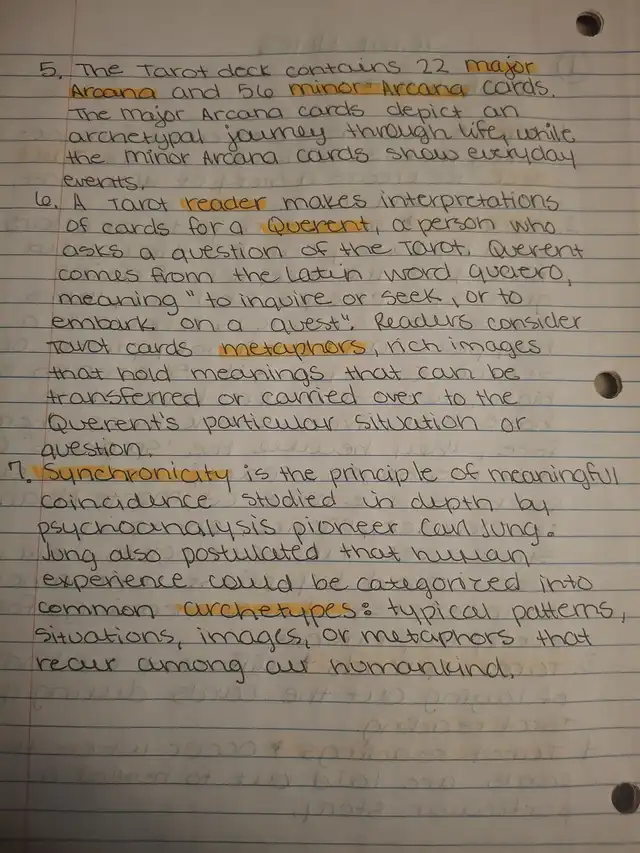 5. The Tarot deck contains 22 major
Arcana and 56 minor Arcana cards.
The major Arcana cards depict an
archetypal journey through life, while
the minor Arcana cards show everyday
events.
6. A Tarot reader makes interpretations
of cards for a Querent, a person who
asks a question of the Tarot. Querent
comes from the Latin word quaero,
meaning "to inquire or seek, or to
embark on a quest". Readers consider
Tarot cards metaphors, rich images
that hold meanings that can be
transferred or carried over to the
Querent's particular situation or
question.
7. Synchronicity is the principle of meaningful
coincidence studied in depth by
psychoanalysis pioneer Carl Jung.
Jung also postulated that human
experience could be categorized into
common archetypes: typical patterns,
situations, images, or metaphors that
recur among all humankind.